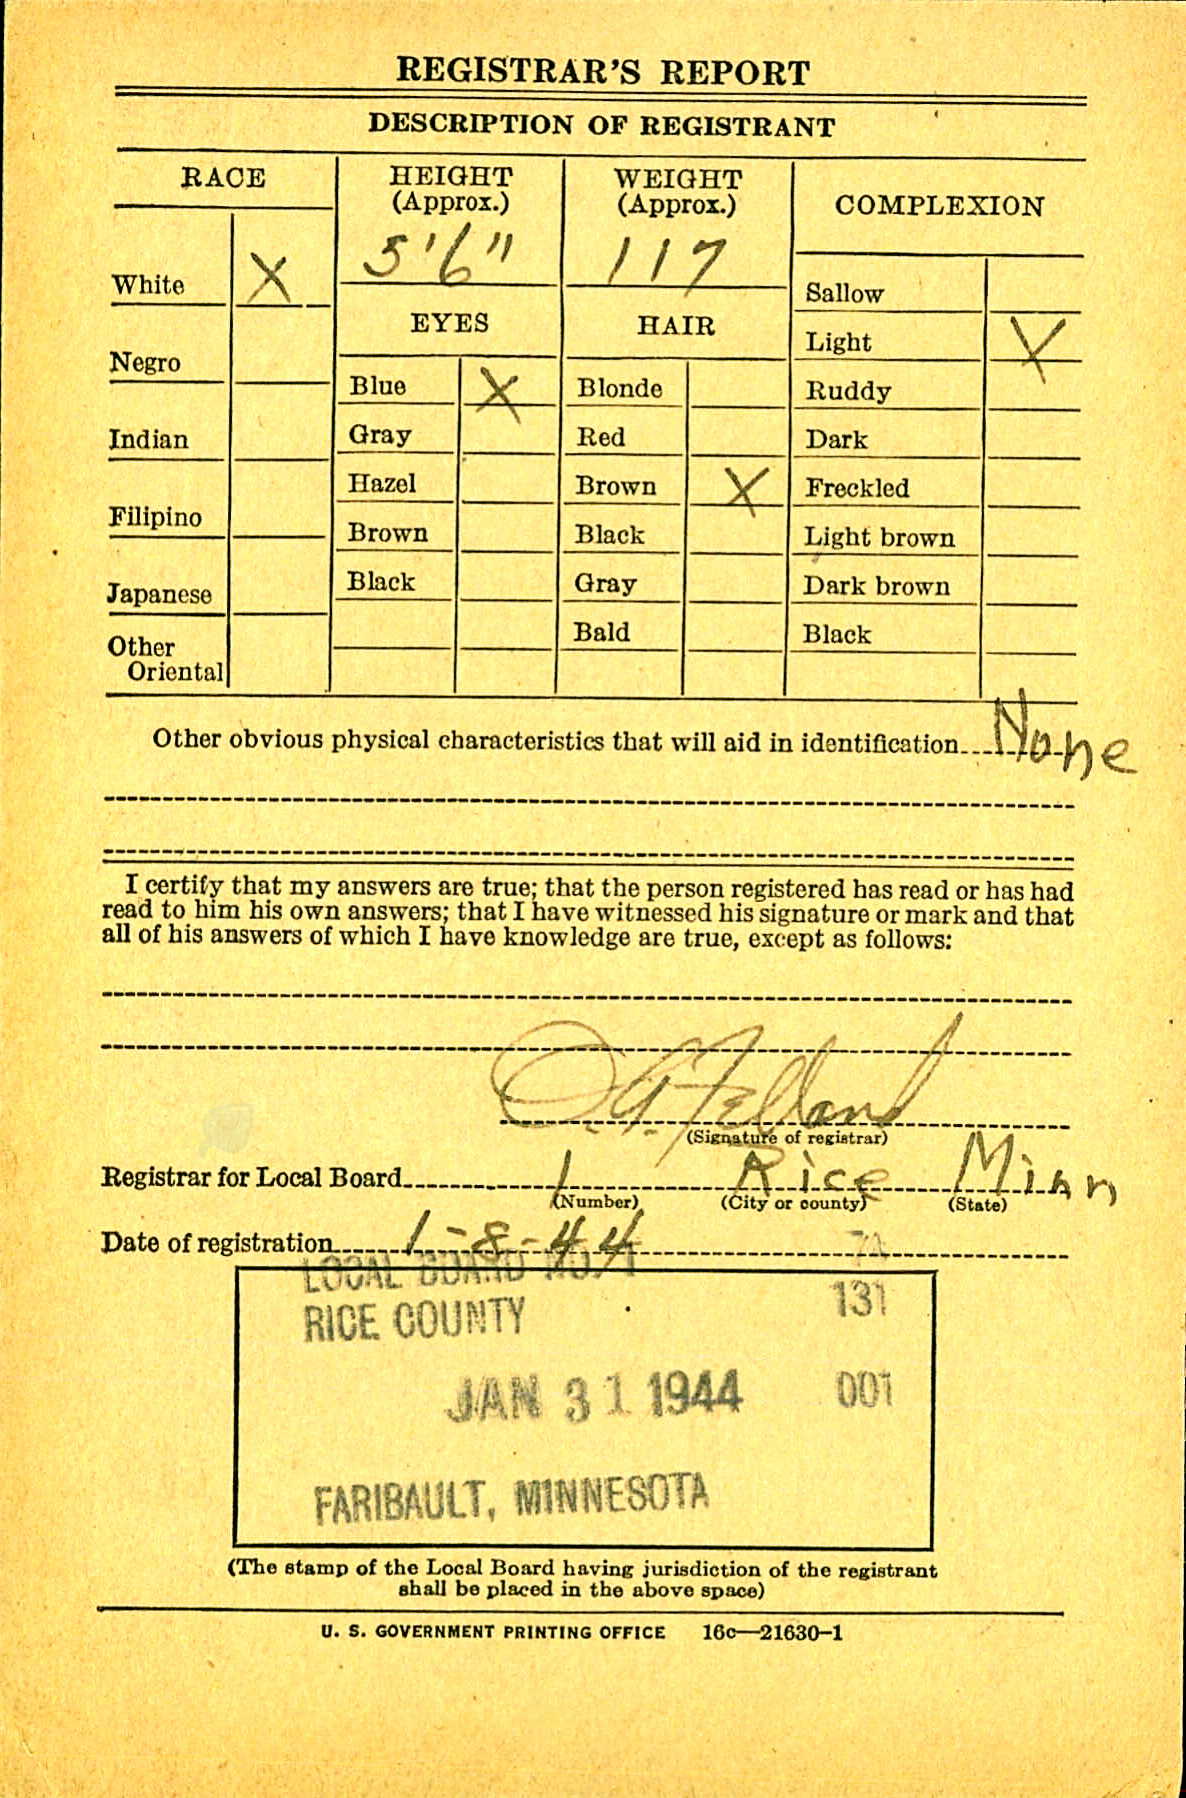 REGISTRAR'S REPORT
DESCRIPTION OF REGISTRANT
RACE
White X
Negro
Indian
Filipino
Japanese
Other
Oriental
HEIGHT
(Approx.)
5'6"
EYES
Blue X
Gray
Hazel
Brown
Black
WEIGHT
(Approx.)
117
HAIR
Blonde
Red
Brown X
Black
Gray
Bald
COMPLEXION
Sallow
Light X
Ruddy
Dark
Freckled
Light brown
Dark brown
Black
Other obvious physical characteristics that will aid in identification None
I certify that my answers are true; that the person registered has read or has had
read to him his own answers; that I have witnessed his signature or mark and that
all of his answers of which I have knowledge are true, except as follows:
Felland
(Signature of registrar)
Registrar for Local Board 1 Rice Minn
(Number) (City or county) (State)
Date of registration 1-8-44
LOCAL BOARD NO. 1
RICE COUNTY 131
JAN 31 1944 001
FARIBAULT, MINNESOTA
(The stamp of the Local Board having jurisdiction of the registrant
shall be placed in the above space)
U. S. GOVERNMENT PRINTING OFFICE 16c—21630-1